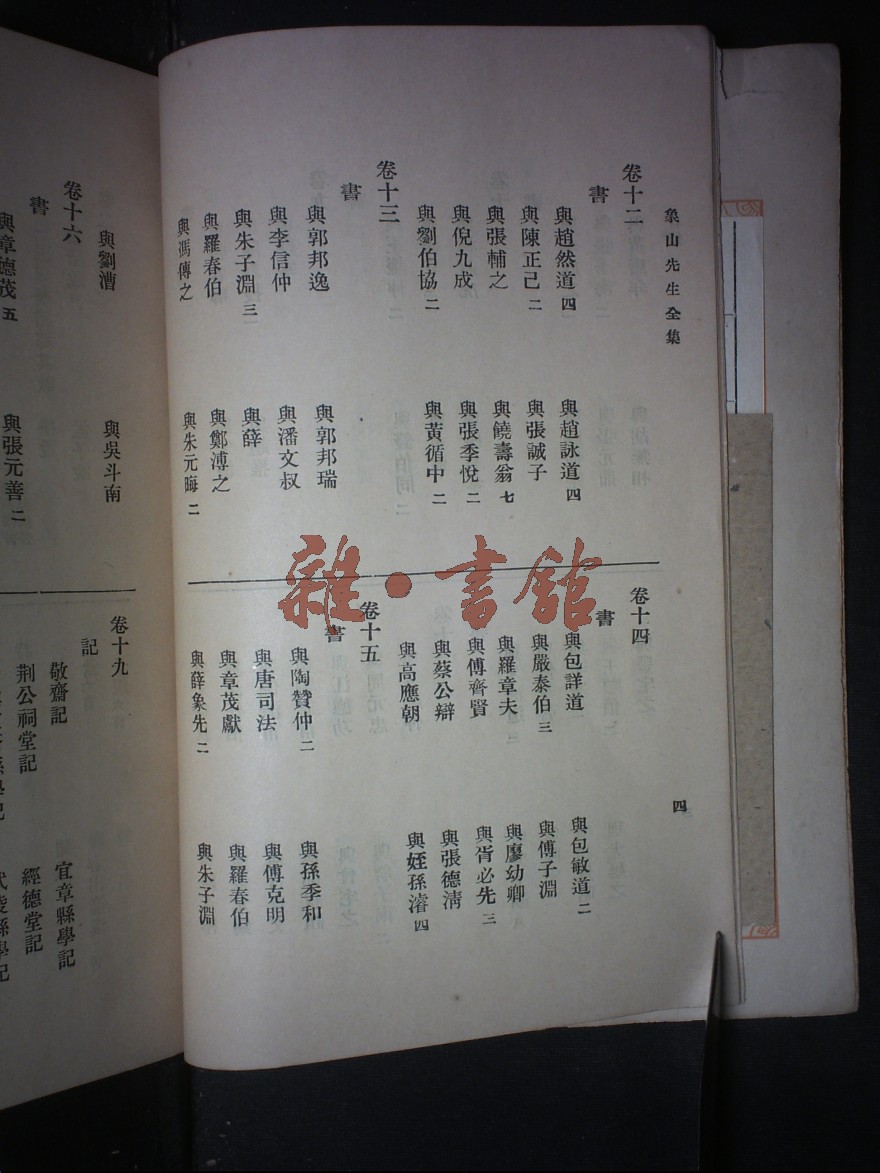 象山先生全集
卷十二
書
與趙然道 四
與趙詠道 四
與陳正己 二
與張誠子
與張輔之
與饒壽翁 七
與倪九成
與張季悅 二
與劉伯協 二
與黃循中 二
卷十三
書
與郭邦逸
與郭邦瑞
與李信仲
與潘文叔
與朱子淵 三
與薛
與羅春伯
與鄭溥之
與馮傳之
與朱元晦 二
卷十四
書
與包詳道
與包敏道 二
與嚴泰伯 三
與傅子淵
與羅章夫
與廖幼卿
與傅齊賢
與胥必先 三
與蔡公辯
與張德清
與高應朝
與姪孫濬 四
卷十五
書
與陶贊仲 二
與孫季和
與唐司法
與傅克明
與章茂獻
與羅春伯
與薛象先 二
與朱子淵
四
與劉漕
與吳斗南
卷十六
書
與章德茂 五
與張元善 二
卷十九
記
敬齋記
宜章縣學記
荆公祠堂記
經德堂記
武陵縣學記
雜·書館